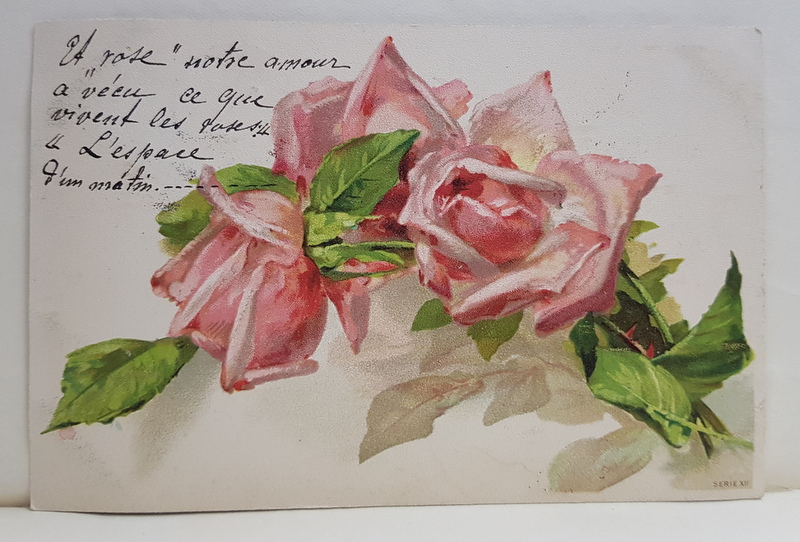 Et rose " notre amour
a "vécu ce que
vivent les roses"
" L'espace
d'un matin.-----------
SERIE XII